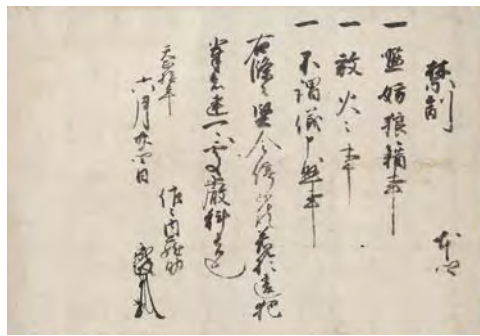 禁制
一 濫妨狼藉事
一 放火之事
一 不謂儀申懸事
右條々堅令停止訖若於違犯
輩者速可処厳科者也
天正
六月廿四日
佐々内蔵助
成政